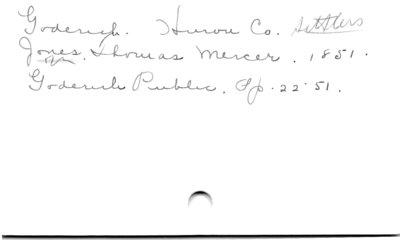 Goderich. Huron Co. Settlers
Jones. Thomas Mercer. 1851.
Goderich Public. Ap. 22. 51.